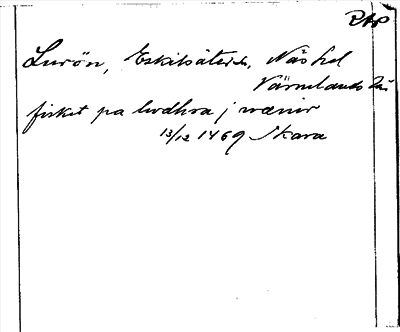 RAP
Lurön, Eskilsäters sn, Näs hd
Värmlands län
fisket pa lwdhra j wænir
13/12 1469 Skara